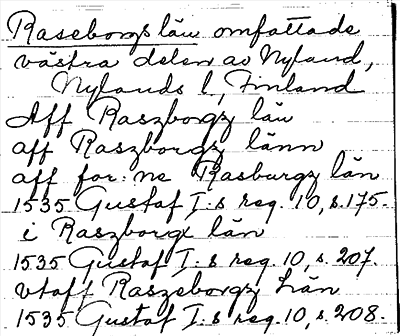 Raseborgs län omfattade
västra delen av Nyland,
Nylands l, Finland
Aff Raszborgz län
aff Raszborgz länn
aff for:ne Rasburgz län
1535 Gustaf I:s reg. 10, s. 175.
i Raszborgx län
1535 Gustaf I:s reg. 10, s. 207.
vtaff Raszeborgz Län
1535 Gustaf I:s reg. 10, s. 208.